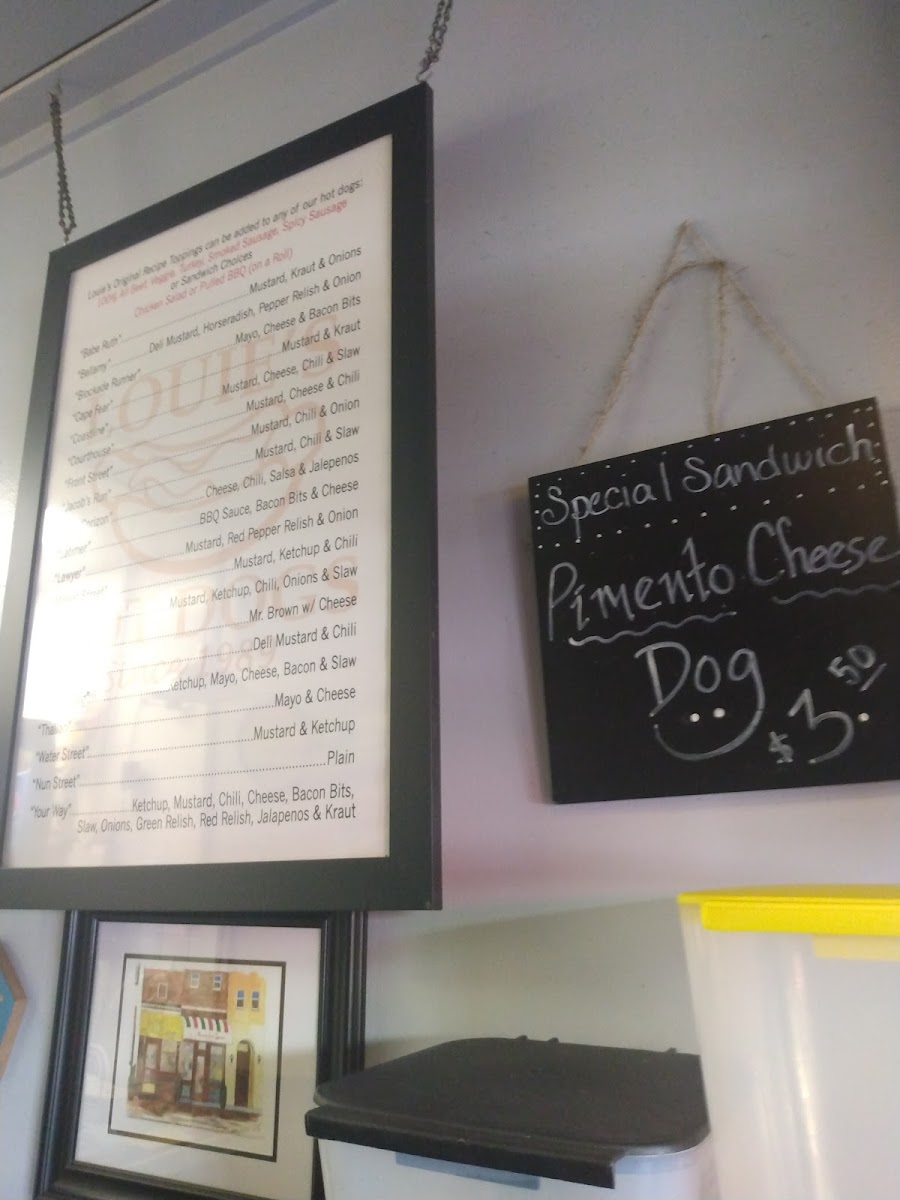 Louie's Original Recipe Toppings can be added to any of our hot dogs:
100% All Beef, Veggie, Turkey, Smoked Sausage, Spicy Sausage
or Sandwich Choices
Chicken Salad or Pulled BBQ (on a Roll)
"Babe Ruth" Mustard, Kraut & Onions
"Bellamy" Deli Mustard, Horseradish, Pepper Relish & Onion
"Blockade Runner" Mayo, Cheese & Bacon Bits
"Cape Fear" Mustard & Kraut
"Coastline" Mustard, Cheese, Chili & Slaw
"Courthouse" Mustard, Cheese & Chili
"Front Street" Mustard, Chili & Onion
"Jacob's Run" Mustard, Chili & Slaw
Cheese, Chili, Salsa & Jalepenos
"Latimer" BBQ Sauce, Bacon Bits & Cheese
"Lawyer" Mustard, Red Pepper Relish & Onion
Mustard, Ketchup & Chili
Mustard, Ketchup, Chili, Onions & Slaw
Mr. Brown w/ Cheese
Deli Mustard & Chili
Ketchup, Mayo, Cheese, Bacon & Slaw
Mayo & Cheese
"Water Street" Mustard & Ketchup
"Nun Street" Plain
"Your Way" Ketchup, Mustard, Chili, Cheese, Bacon Bits,
Slaw, Onions, Green Relish, Red Relish, Jalapenos & Kraut
LOUIE'S
DOGS
1989
Special Sandwich
Pimento Cheese
Dog
$3.50